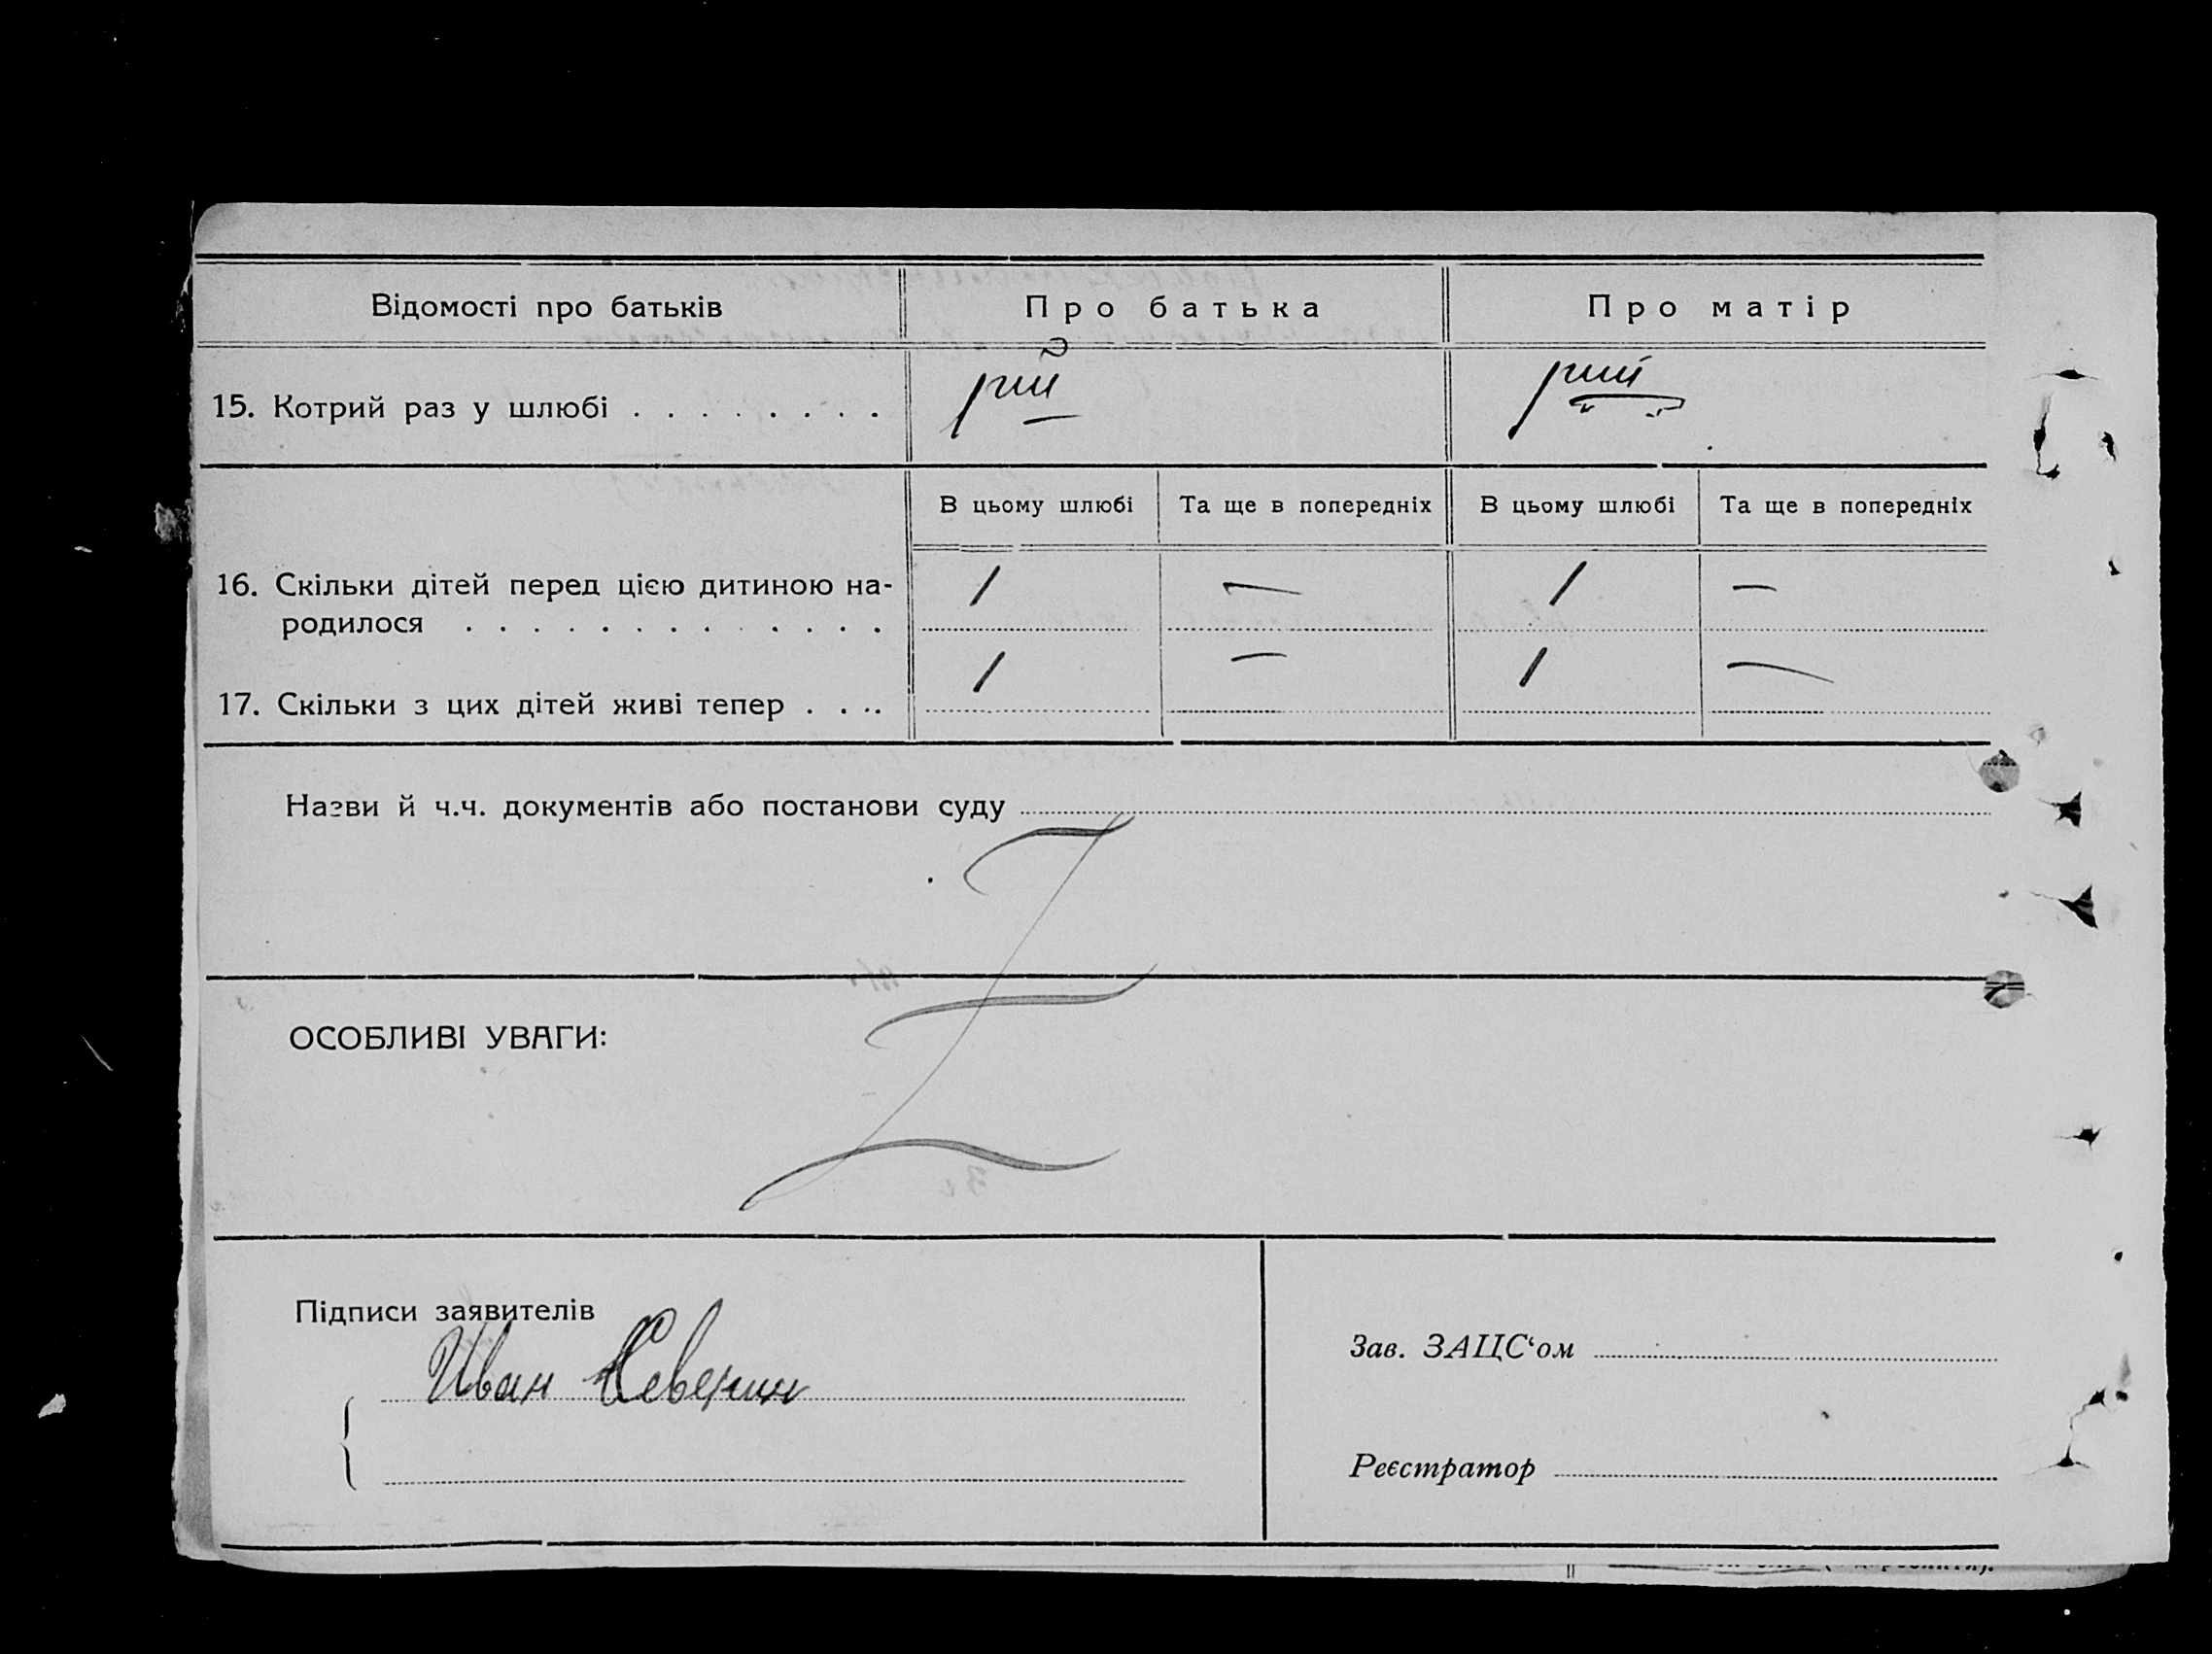 Відомості про батьків
Про батька
Про матір
15. Котрий раз у шлюбі . . . . . . . .
В цьому шлюбі
Та ще в попередніх
В цьому шлюбі
Та ще в попередніх
16. Скільки дітей перед цією дитиною на-
родилося . . . . . . . . . . . . .
1 — 1 —
17. Скільки з цих дітей живі тепер . . . .
1 — 1 —
Назви й ч.ч. документів або постанови суду
ОСОБЛИВІ УВАГИ:
Підписи заявителів
Иван Северин
Зав. ЗАЦС‘ом
Реєстратор